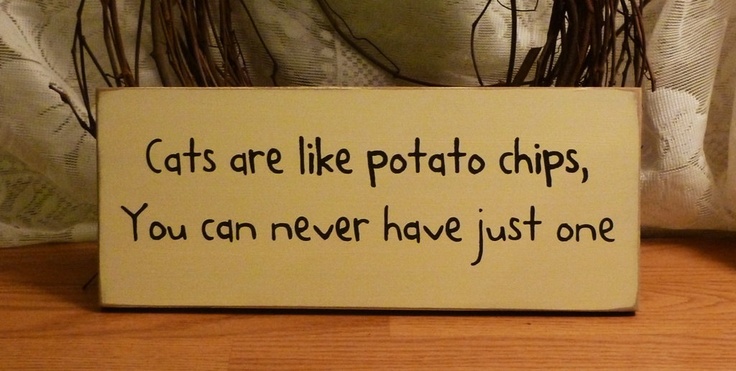 Cats are like potato chips,
You can never have just one